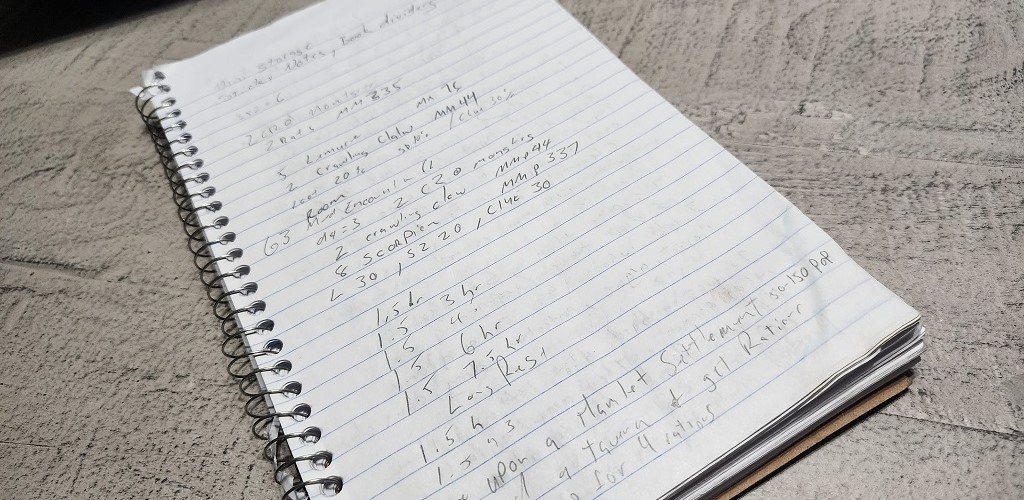 Mini storage
Sticker Notes, Book dividers
2 CR0 Monsters
2 Rats MM 335
5 Lemure MM 76
2 Crawling Claw MM44
Loot 20% /Clue 30%
Room
63 Mind Encounter
d4=3 2 CR0 monsters
2 crawling claw MMp44
8 scorpion MMP 337
L 30 / S2 20 / Clue 30
1.5 hr 3 hr
1.5 4.
1.5 6 hr
1.5 7.5 hr
Long Rest
1.5 h
1.5 3
upon a Hamlet Settlement 50-150 POP
a tavern & get Rations
for 4 rations